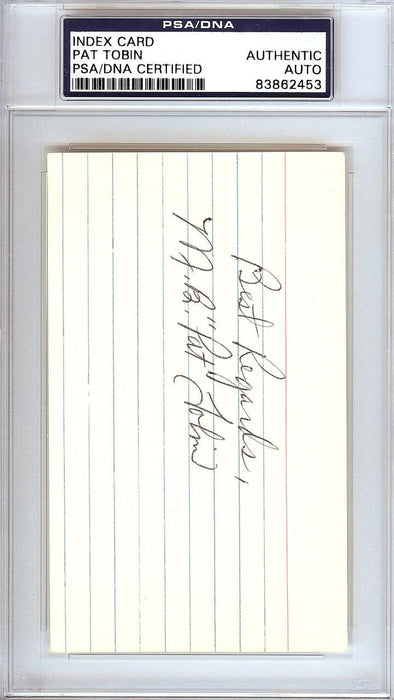 PSA/DNA
INDEX CARD
PAT TOBIN
PSA/DNA CERTIFIED
AUTHENTIC
AUTO
83862453
Best Regards,
M. B. "Pat" Tobin